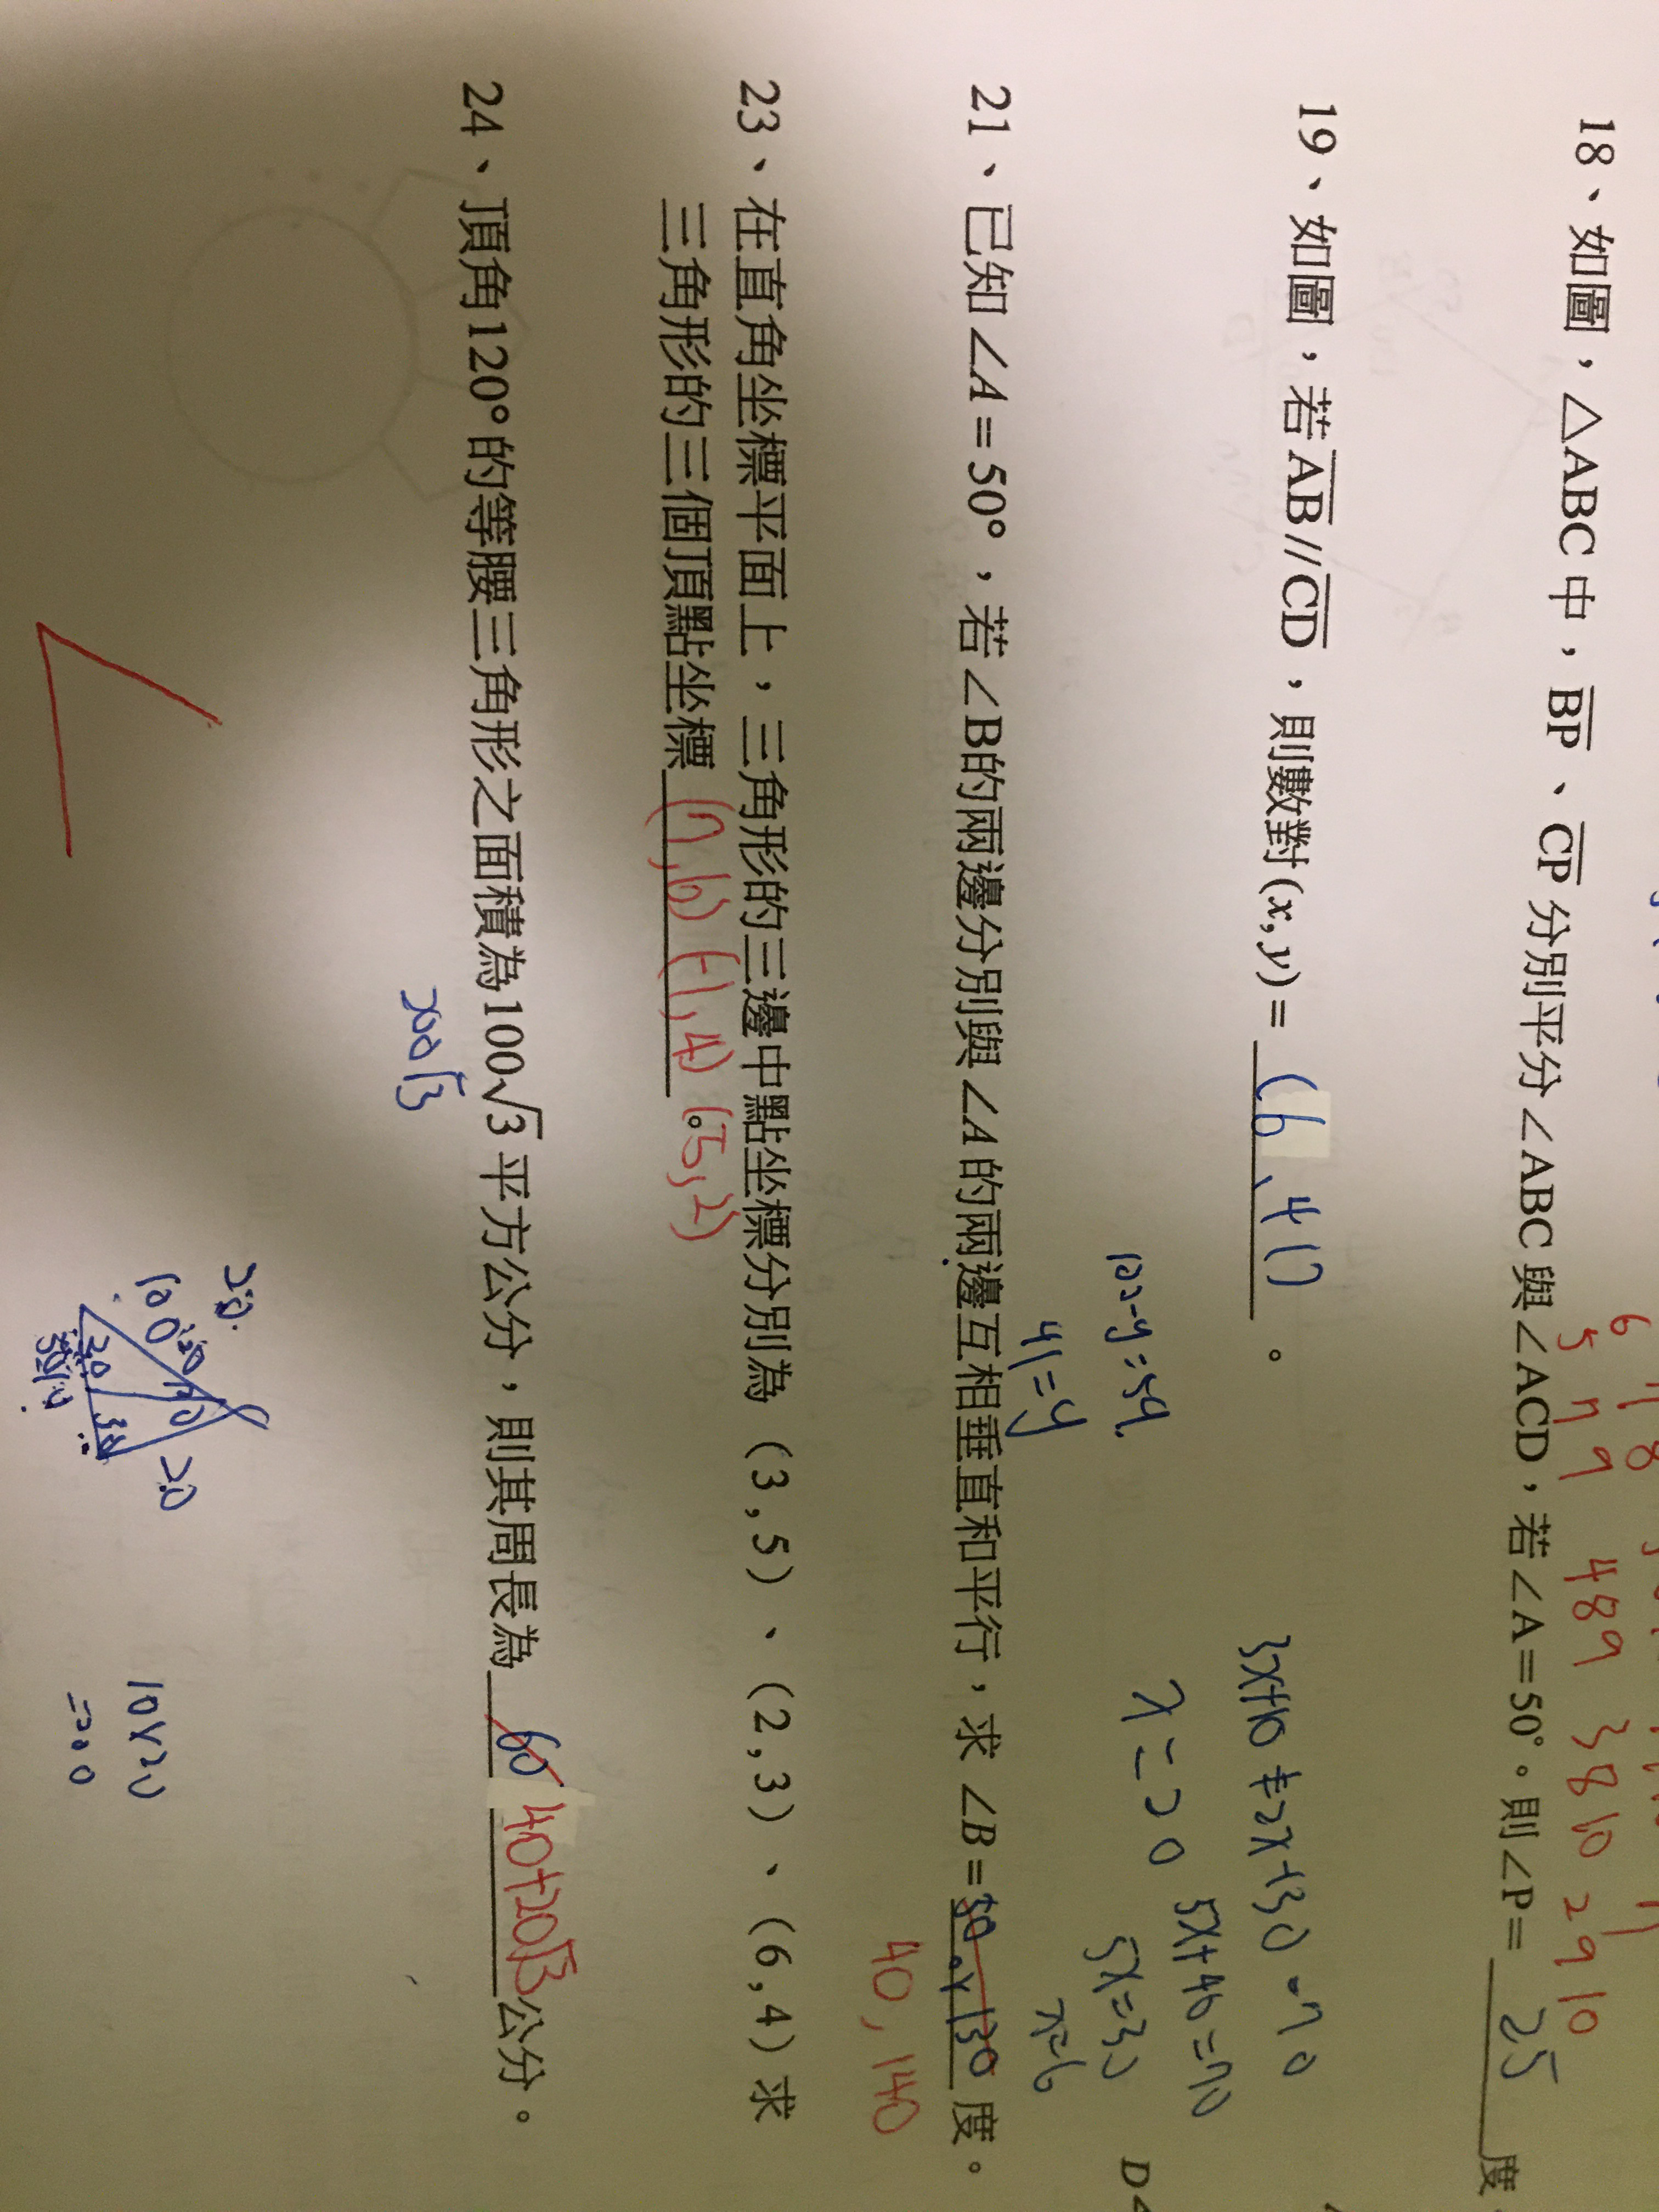 18、如圖，△ABC 中，BP、CP 分別平分∠ABC 與∠ACD，若∠A＝50°。則∠P＝ 25 度
6 7 8
5 7 9 489 3810 2910
19、如圖，若 AB//CD，則數對(x,y)＝ (6、41) 。
3x+10+2x+30=70
5x+40=70
5x=30
x=6
x=20
100-y=59.
41=y
21、已知∠A＝50°，若∠B的兩邊分別與∠A 的兩邊互相垂直和平行，求∠B＝50或130度。
40,140
23、在直角坐標平面上，三角形的三邊中點坐標分別為（3,5）、（2,3）、（6,4）求
三角形的三個頂點坐標 (7,6) (-1,4) (5,2) 。
24、頂角120°的等腰三角形之面積為100√3 平方公分，則其周長為 60 40+20√3 公分。
200√3
20.
100
20
20
30
10×20
=200